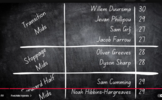 Transition Mids
Willem Duursma 30
Jevan Phillipou 29
Sam Grl 29
Jacob Farrow 27
Stoppage Mids
Oliver Greeves 28
Dyson Sharp 28
Inward Half
Sam Cumming 29
Noah Hibbins-Hargreaves 29